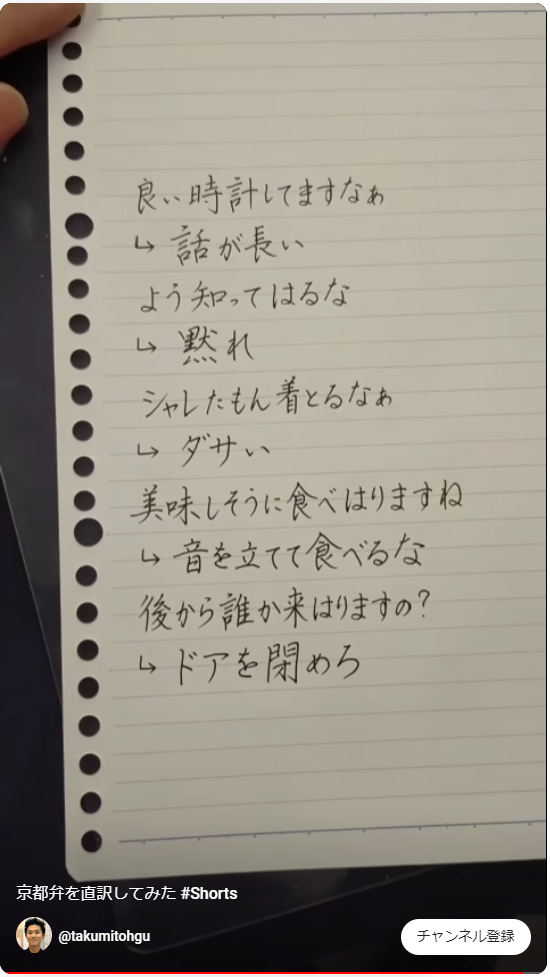 良い時計してますなぁ
↳ 話が長い
よう知ってはるな
↳ 黙れ
シャレたもん着とるなぁ
↳ ダサい
美味しそうに食べはりますね
↳ 音を立てて食べるな
後から誰か来はりますの?
↳ ドアを閉めろ
京都弁を直訳してみた #Shorts
@takumitohgu
チャンネル登録